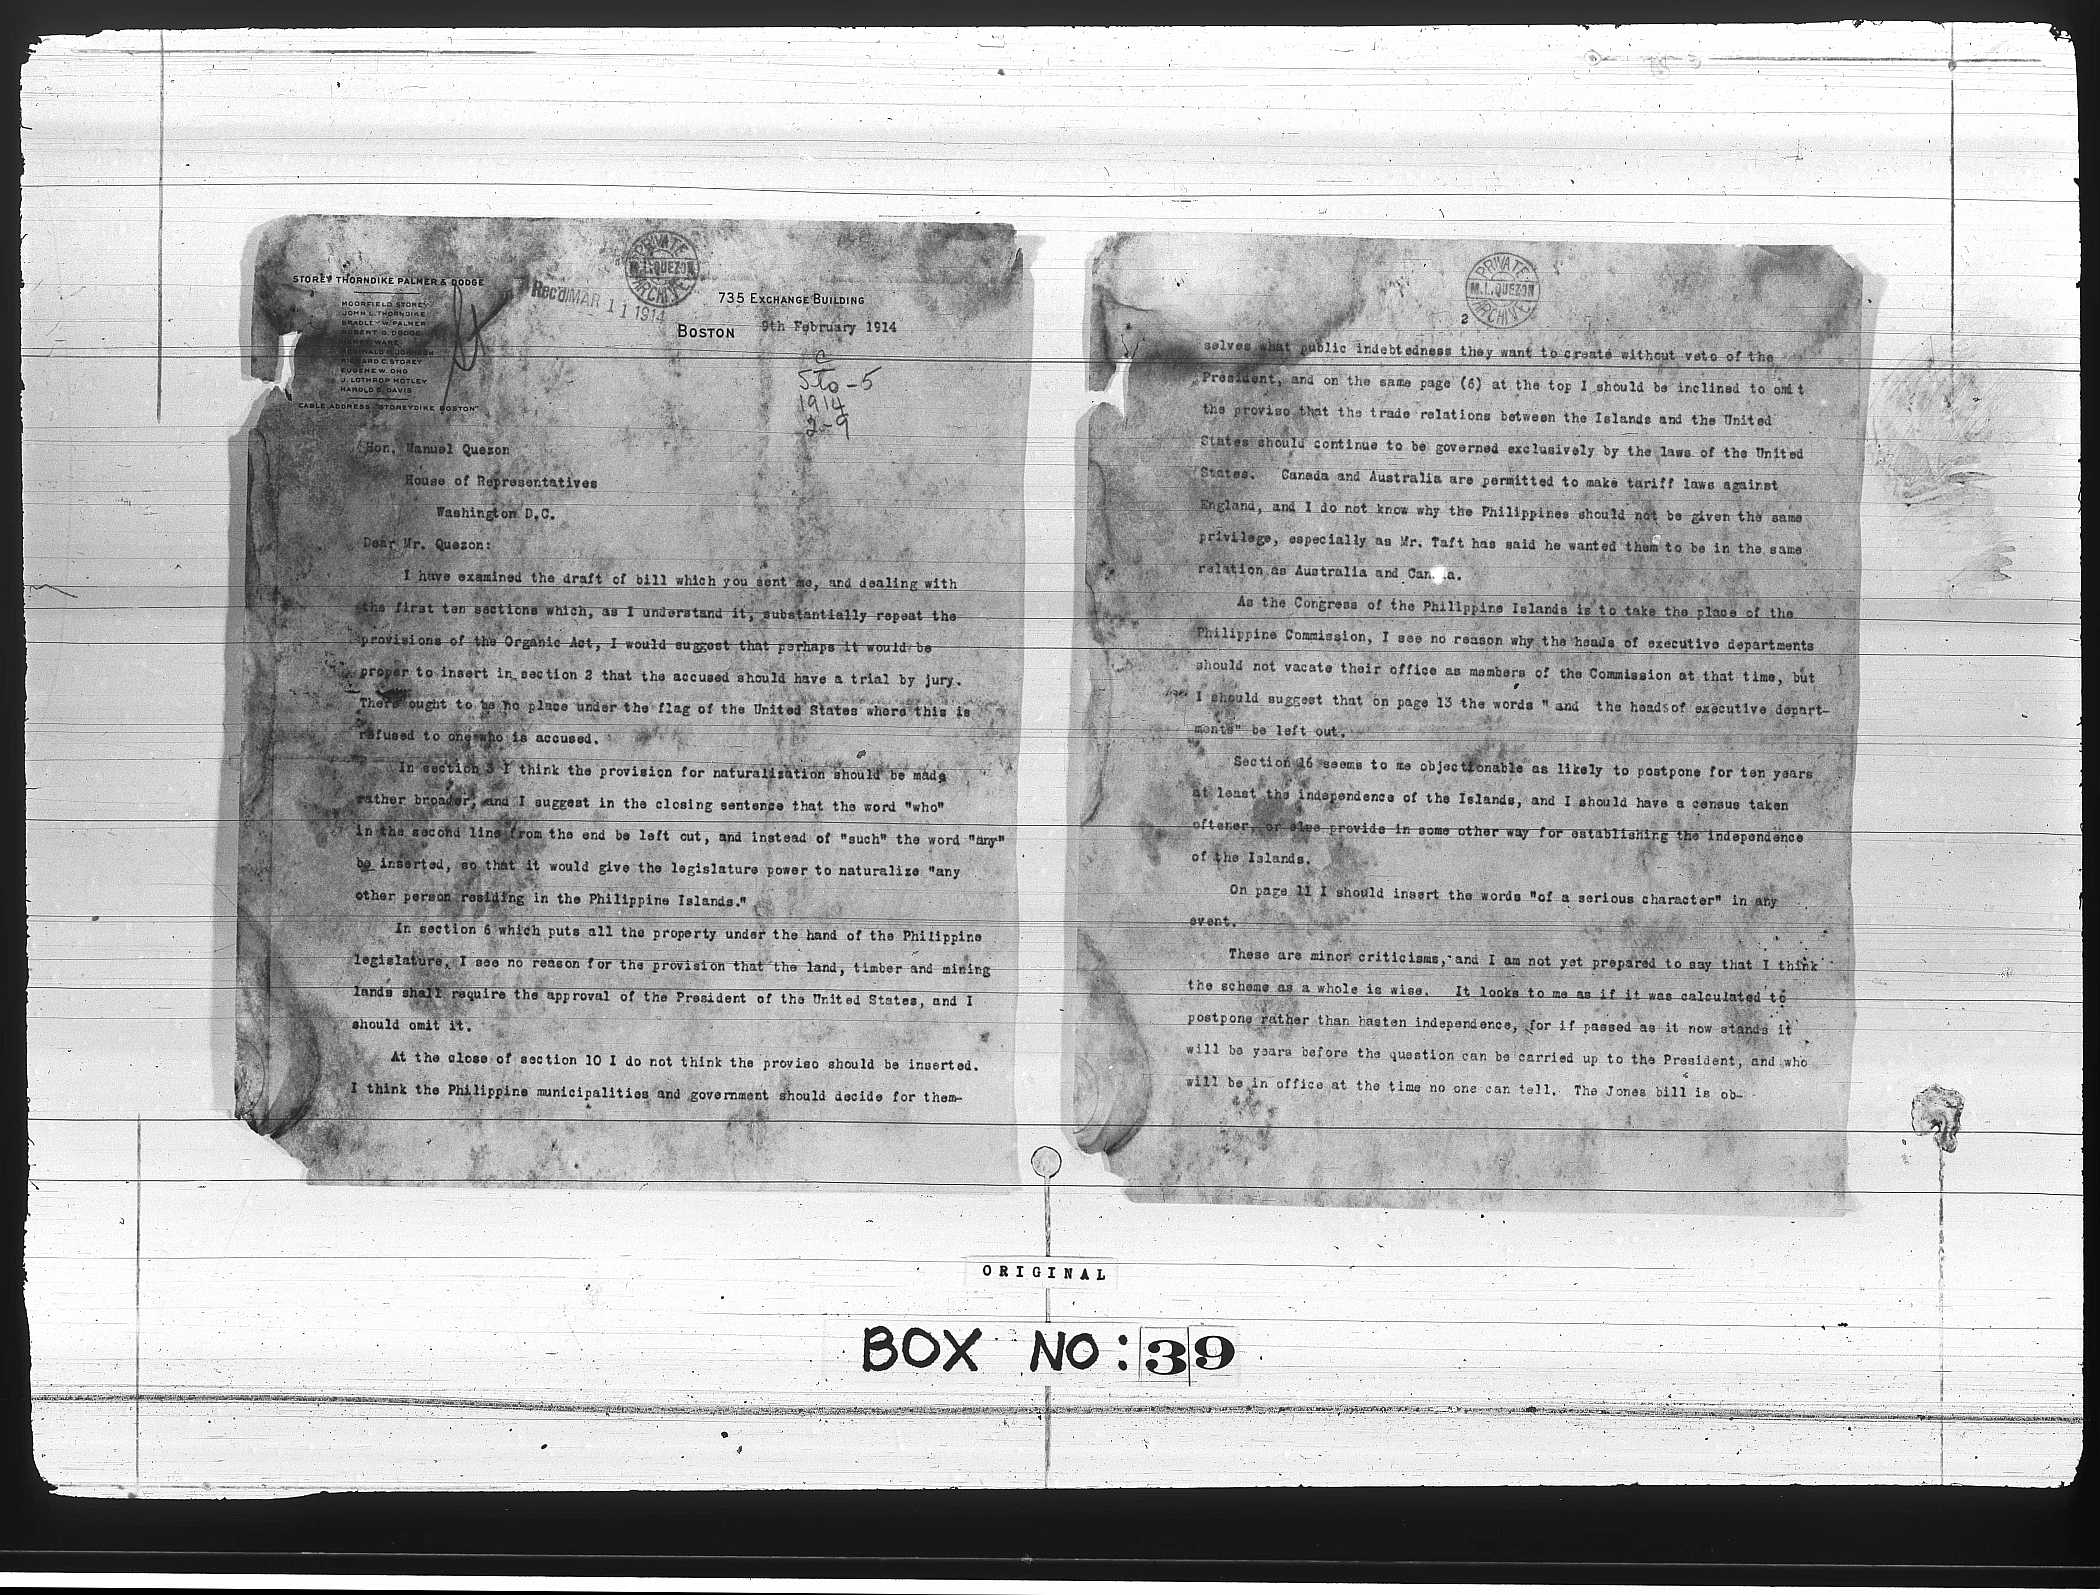 STOREY THORNDIKE PALMER & DODGE
MOORFIELD STOREY
JOHN L. THORNDIKE
BRADLEY W. PALMER
ROBERT G. DODGE
WARE
REGINALD JOHNSON
RICHARD C. STOREY
EUGENE W. ONG
J. LOTHROP MOTLEY
HAROLD S. DAVIS
CABLE ADDRESS "STOREYDIKE BOSTON"
Rec'd MAR 11 1914
PRIVATE
M.L. QUEZON
ARCHIVE
735 EXCHANGE BUILDING
BOSTON 9th February 1914
Sto-5
1914
2-9
Hon. Manuel Quezon
House of Representatives
Washington D.C.
Dear Mr. Quezon:
I have examined the draft of bill which you sent me, and dealing with
the first ten sections which, as I understand it, substantially repeat the
provisions of the Organic Act, I would suggest that perhaps it would be
proper to insert in section 2 that the accused should have a trial by jury.
There ought to be no place under the flag of the United States where this is
refused to one who is accused.
In section 3 I think the provision for naturalization should be made
rather broader, and I suggest in the closing sentence that the word "who"
in the second line from the end be left out, and instead of "such" the word "any"
be inserted, so that it would give the legislature power to naturalize "any
other person residing in the Philippine Islands."
In section 6 which puts all the property under the hand of the Philippine
legislature, I see no reason for the provision that the land, timber and mining
lands shall require the approval of the President of the United States, and I
should omit it.
At the close of section 10 I do not think the proviso should be inserted.
I think the Philippine municipalities and government should decide for them-
PRIVATE
M.L. QUEZON
ARCHIVE
2
selves what public indebtedness they want to create without veto of the
President, and on the same page (6) at the top I should be inclined to omit
the proviso that the trade relations between the Islands and the United
States should continue to be governed exclusively by the laws of the United
States. Canada and Australia are permitted to make tariff laws against
England, and I do not know why the Philippines should not be given the same
privilege, especially as Mr. Taft has said he wanted them to be in the same
relation as Australia and Can a.
As the Congress of the Philippine Islands is to take the place of the
Philippine Commission, I see no reason why the heads of executive departments
should not vacate their office as members of the Commission at that time, but
I should suggest that on page 13 the words " and the heads of executive depart-
ments" be left out.
Section 16 seems to me objectionable as likely to postpone for ten years
at least the independence of the Islands, and I should have a census taken
oftener, or else provide in some other way for establishing the independence
of the Islands.
On page 11 I should insert the words "of a serious character" in any
event.
These are minor criticisms, and I am not yet prepared to say that I think
the scheme as a whole is wise. It looks to me as if it was calculated to
postpone rather than hasten independence, for if passed as it now stands it
will be years before the question can be carried up to the President, and who
will be in office at the time no one can tell. The Jones bill is ob-
ORIGINAL
BOX NO: 39